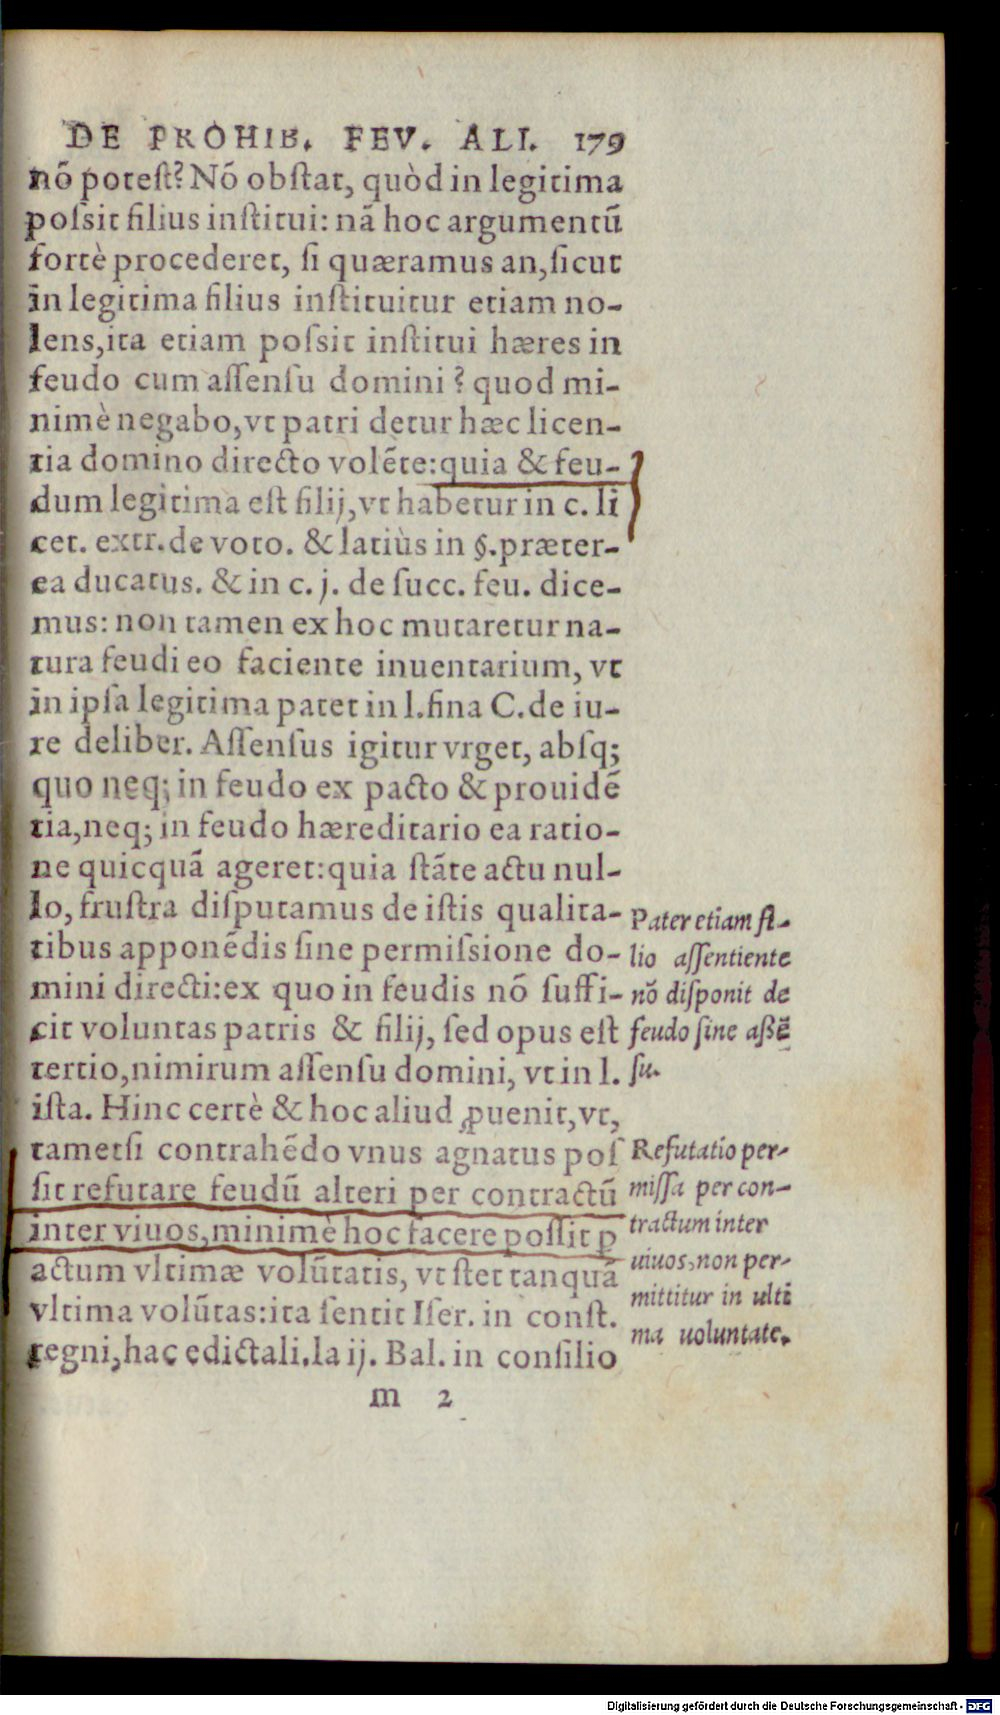 DE PROHIB. FEV. ALI. 179
nō potest? Nō obstat, quòd in legitima
possit filius institui: nā hoc argumentū
fortè procederet, si quæramus an, sicut
in legitima filius instituitur etiam no-
lens, ita etiam possit institui hæres in
feudo cum assensu domini? quod mi-
nimè negabo, vt patri detur hæc licen-
tia domino directo volēte: quia & feu-
dum legitima est filij, vt habetur in c. li
cet. extr. de voto. & latiùs in §. præter-
ea ducatus. & in c. j. de succ. feu. dice-
mus: non tamen ex hoc mutaretur na-
tura feudi eo faciente inuentarium, vt
in ipsa legitima patet in l. fina C. de iu-
re deliber. Assensus igitur vrget, absq;
quo neq; in feudo ex pacto & prouidē
tia, neq; in feudo hæreditario ea ratio-
ne quicquā ageret: quia stāte actu nul-
lo, frustra disputamus de istis qualita-
tibus apponēdis sine permissione do-
mini directi: ex quo in feudis nō suffi-
cit voluntas patris & filij, sed opus est
tertio, nimirum assensu domini, vt in l.
ista. Hinc certè & hoc aliud ꝓuenit, vt,
tametsi contrahēdo vnus agnatus pos
sit refutare feudū alteri per contractū
inter viuos, minimè hoc facere possit ꝑ
actum vltimæ volūtatis, vt stet tanquā
vltima volūtas: ita sentit Iser. in const.
regni, hac edictali. la ij. Bal. in consilio
m 2
Pater etiam fi-
lio assentiente
nō disponit de
feudo sine assē
su.
Refutatio per-
missa per con-
tractum inter
uiuos, non per-
mittitur in ulti
ma uoluntate.
Digitalisierung gefördert durch die Deutsche Forschungsgemeinschaft - DFG